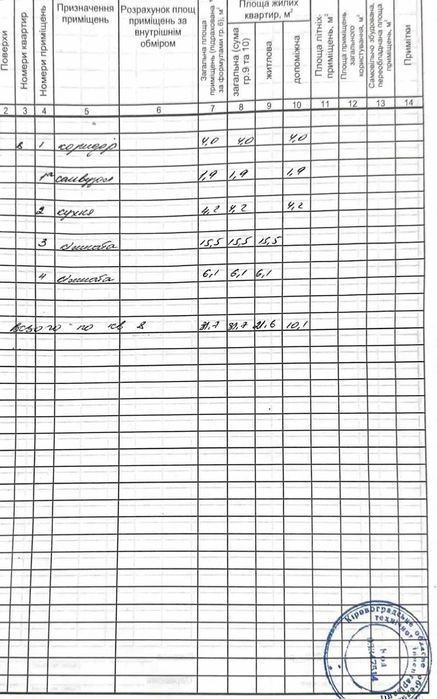 Поверхи
Номери квартир
Номери приміщень
Призначення приміщень
Розрахунок площ приміщень за внутрішнім обміром
Загальна площа приміщень (підрахована за формулами гр.6), м²
Площа жилих квартир, м²
загальна (сума гр.9 та 10)
житлова
допоміжна
Площа літніх приміщень, м²
Площа приміщень загального користування, м²
Самовільно збудована, переобладнана площа приміщень, м²
Примітки
2 3 4 5 6 7 8 9 10 11 12 13 14
8 1 коридор 4,0 4,0 4,0
1а санвузол 1,9 1,9 1,9
2 кухня 4,2 4,2 4,2
3 кімната 15,5 15,5 15,5
4 кімната 6,1 6,1 6,1
Всього по кв 8 31,7 31,7 21,6 10,1
Кіровоградське обласне